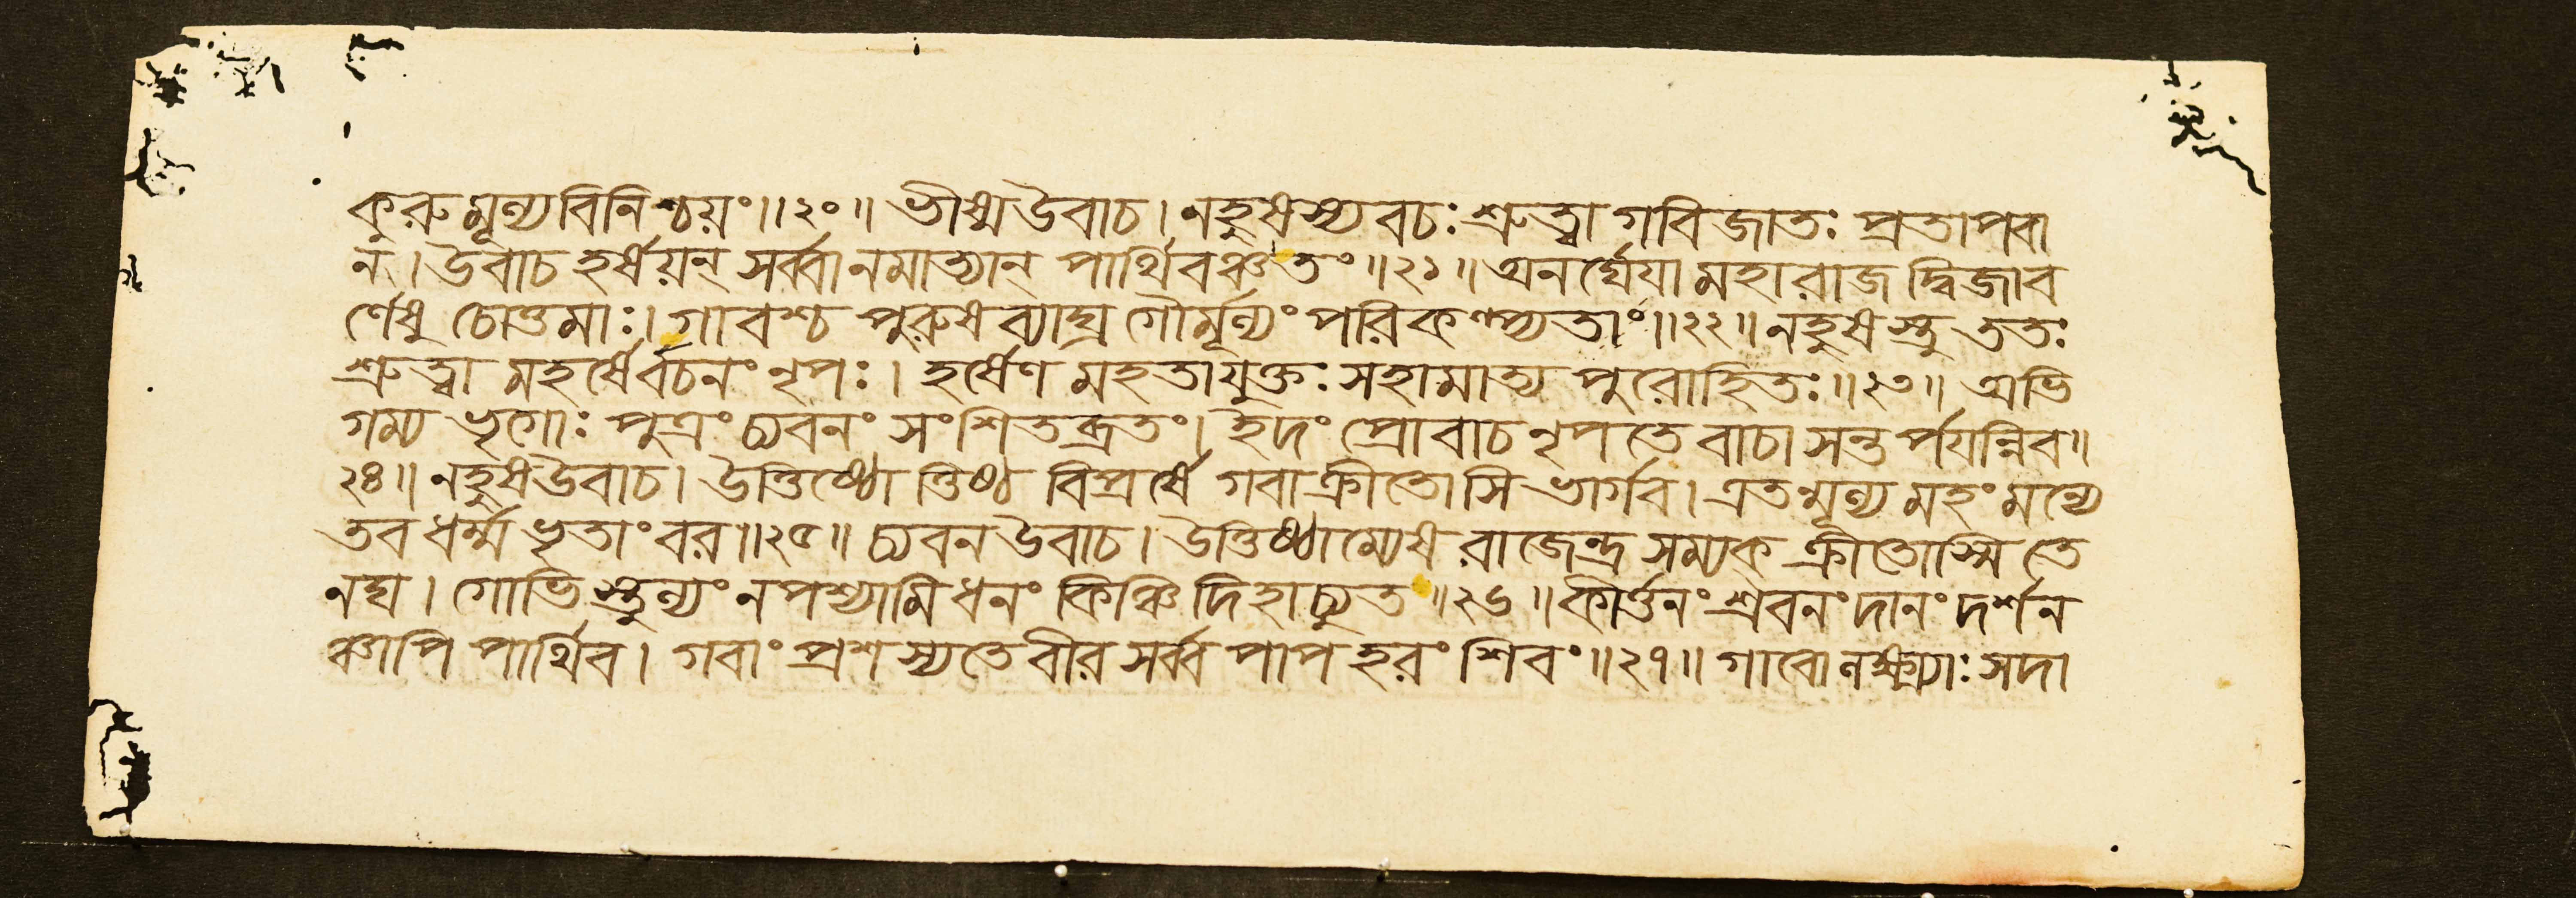 কুরু মূল্যবিনিশ্চয়ং॥২০॥ ভীষ্মউবাচ। নহুষস্য বচঃ শ্রুত্বা গবিজাতঃ প্রতাপবা
ন্। উবাচ হর্ষয়ন্ সর্ব্বানমাত্যান্ পার্থিবঞ্চ তং॥২১॥ অনর্ঘেযা মহারাজ দ্বিজাব
র্ণেষু চোত্তমাঃ। গাবশ্চ পুরুষব্যাঘ্র গৌর্মূল্যং পরিকল্প্যতাং॥২২॥ নহুষস্তু ততঃ
শ্রুত্বা মহর্ষের্বচনং নৃপঃ। হর্ষেণ মহতাযুক্তঃ সহামাত্য পুরোহিতঃ॥২৩॥ অভি
গম্য ভৃগোঃ পুত্রং চ্যবনং সংশিতব্রতং। ইদং প্রোবাচ নৃপতে বাচা সন্তর্পযন্নিব॥
২৪॥ নহুষউবাচ। উত্তিষ্ঠো ত্তিষ্ঠ বিপ্রর্ষে গবা ক্রীতোসি ভার্গব। এতন্মূল্য মহং মন্যে
তব ধর্ম্মভৃতাং বর॥২৫॥ চ্যবন উবাচ। উত্তিষ্ঠাম্যেষ রাজেন্দ্র সম্যক ক্রীতোস্মি তে
নঘ। গোভি স্তুল্যং ন পশ্যামি ধনং কিঞ্চি দিহাচ্যুত॥২৬॥ কীর্ত্তনং শ্রবনং দানং দর্শন
ঞ্চাপি পার্থিব। গবাং প্রশস্যতে বীর সর্ব্ব পাপ হরং শিবং॥২৭॥ গাবোলক্ষ্ম্যাঃ সদা